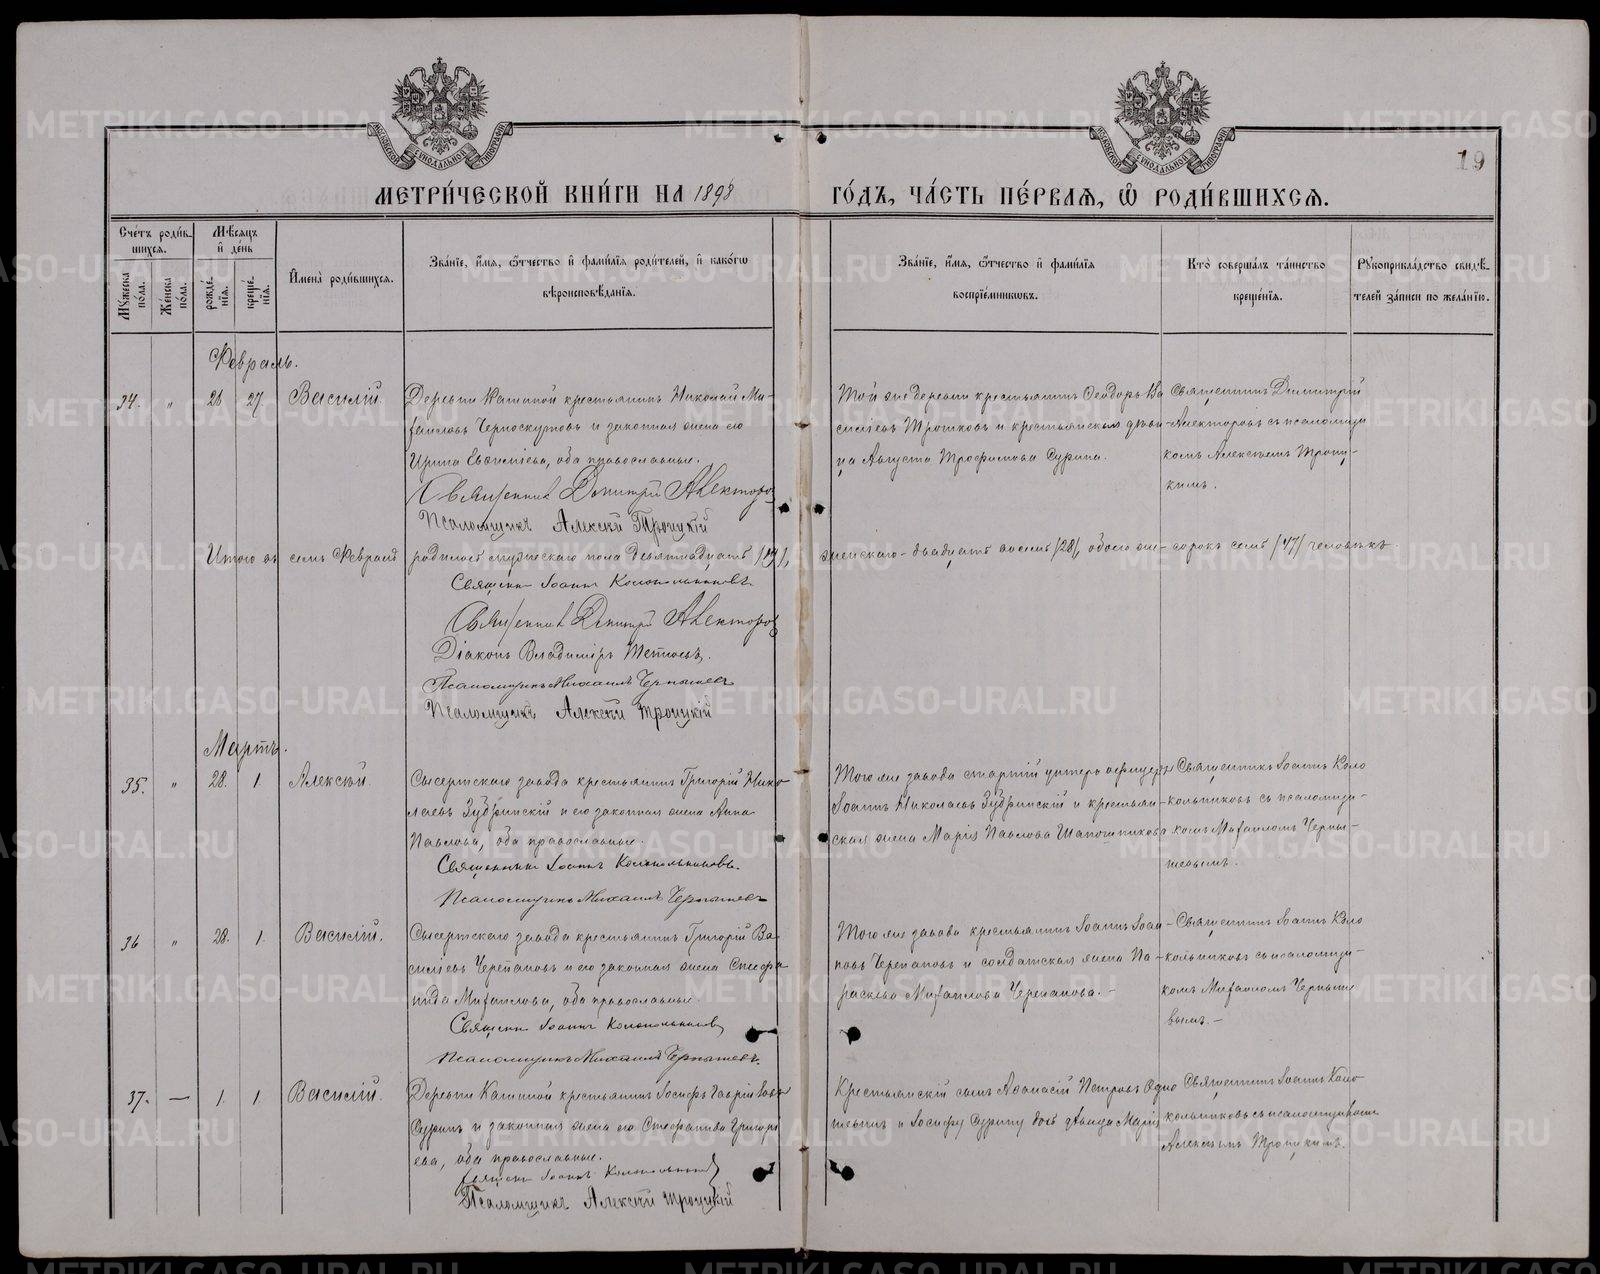 19
МЕТРИ́ЧЕСКОЙ КНИ́ГИ НА 1898 ГО́ДЪ, ЧА́СТЬ ПЕ́РВАЯ, Ѿ РОДИ́ВШИХСЯ.
Сче́тъ роди́вшихся.
Му́жеска по́ла.
Же́нска по́ла.
Мѣ́сяцъ и҆ де́нь
рожде́нїя.
креще́нїя.
И҆мена̀ роди́вшихся.
Зва́нїе, и҆́мя, ѻ҆́тчество и҆ фами́лїя роди́телей, и҆ како́гѡ
вѣроисповѣ́данїя.
Зва́нїе, и҆́мя, ѻ҆́тчество и҆ фами́лїя
воспрїе́мникѡвъ.
Кто̀ соверша́лъ та́инство
креще́нїя.
Рꙋкоприкла́дство свидѣ́телей за́писи по жела́нїю.
Февраль.
34. " 26 27 Василій.
Деревни Кашиной крестьянинъ Николай Ми-
хаиловъ Черноскутовъ и законная жена его
Ирина Евсиміева, оба православные.
Священникъ Димитрій Алекторов
Псаломщикъ Алексѣй Троицкій
Той же деревни крестьянинъ Ѳеодоръ Ва
сильевъ Трошковъ и крестьянская дѣви-
ца Августа Трофимова Сурина.
Священникъ Димитрій
Алекторовъ съ псаломщи
комъ Алексѣемъ Троиц-
кимъ.
Итого въ семъ Февралѣ родилось мужскаго пола девятнадцать /19/, женскаго - двадцать восемь /28/, обоего же - сорокъ семь /47/ человѣкъ.
Священн. Іоаннъ Колокольниковъ
Священникъ Димитрій Алекторов
Діаконъ Владиміръ
Псаломщикъ Михаилъ Чернышевъ
Псаломщикъ Алексѣй Троицкій
Мартъ.
35. " 28. 1. Алексѣй.
Сысертскаго завода крестьянинъ Григорій Нико
лаевъ Зубринскій и его законная жена Анна
Павлова, оба православные.
Священникъ Іоаннъ Колокольниковъ.
Псаломщикъ Михаилъ Чернышевъ
Того же завода старшій унтеръ офицеръ
Іоаннъ Николаевъ Зубринскій и крестьян-
ская жена Марія Павлова Шапошникова
Священникъ Іоаннъ Коло
кольниковъ съ псаломщи-
комъ Михаиломъ Черны-
шевымъ.
36 " 28. 1. Василій.
Сысертскаго завода крестьянинъ Григорій Ва-
сильевъ Черепановъ и его законная жена Стефа
нида Михаилова, оба православные.
Священн. Іоаннъ Колокольниковъ
Псаломщикъ Михаилъ Чернышевъ.
Того же завода крестьянинъ Іоаннъ Іоан-
новъ Черепановъ и солдатская жена Па-
раскева Михаилова Черепанова. -
Священникъ Іоаннъ Коло
кольниковъ съ псаломщи-
комъ Михаиломъ Черныше
вымъ. -
37. — 1. 1 Василій.
Деревни Кашиной крестьянинъ Іосифъ Гавріиловъ
Суринъ и законная жена его Стефанида Григорь
ева, оба православные.
Священн. Іоаннъ Колокольников
Псаломщикъ Алексѣй Троицкій
Крестьянскій сынъ Аѳанасій Петровъ
и Іосифу Сурину дочь дѣвица Марія
Священникъ Іоаннъ Коло
кольниковъ съ псаломщикомъ
Алексѣемъ Троицкимъ.
METRIKI.GASO-URAL.RU